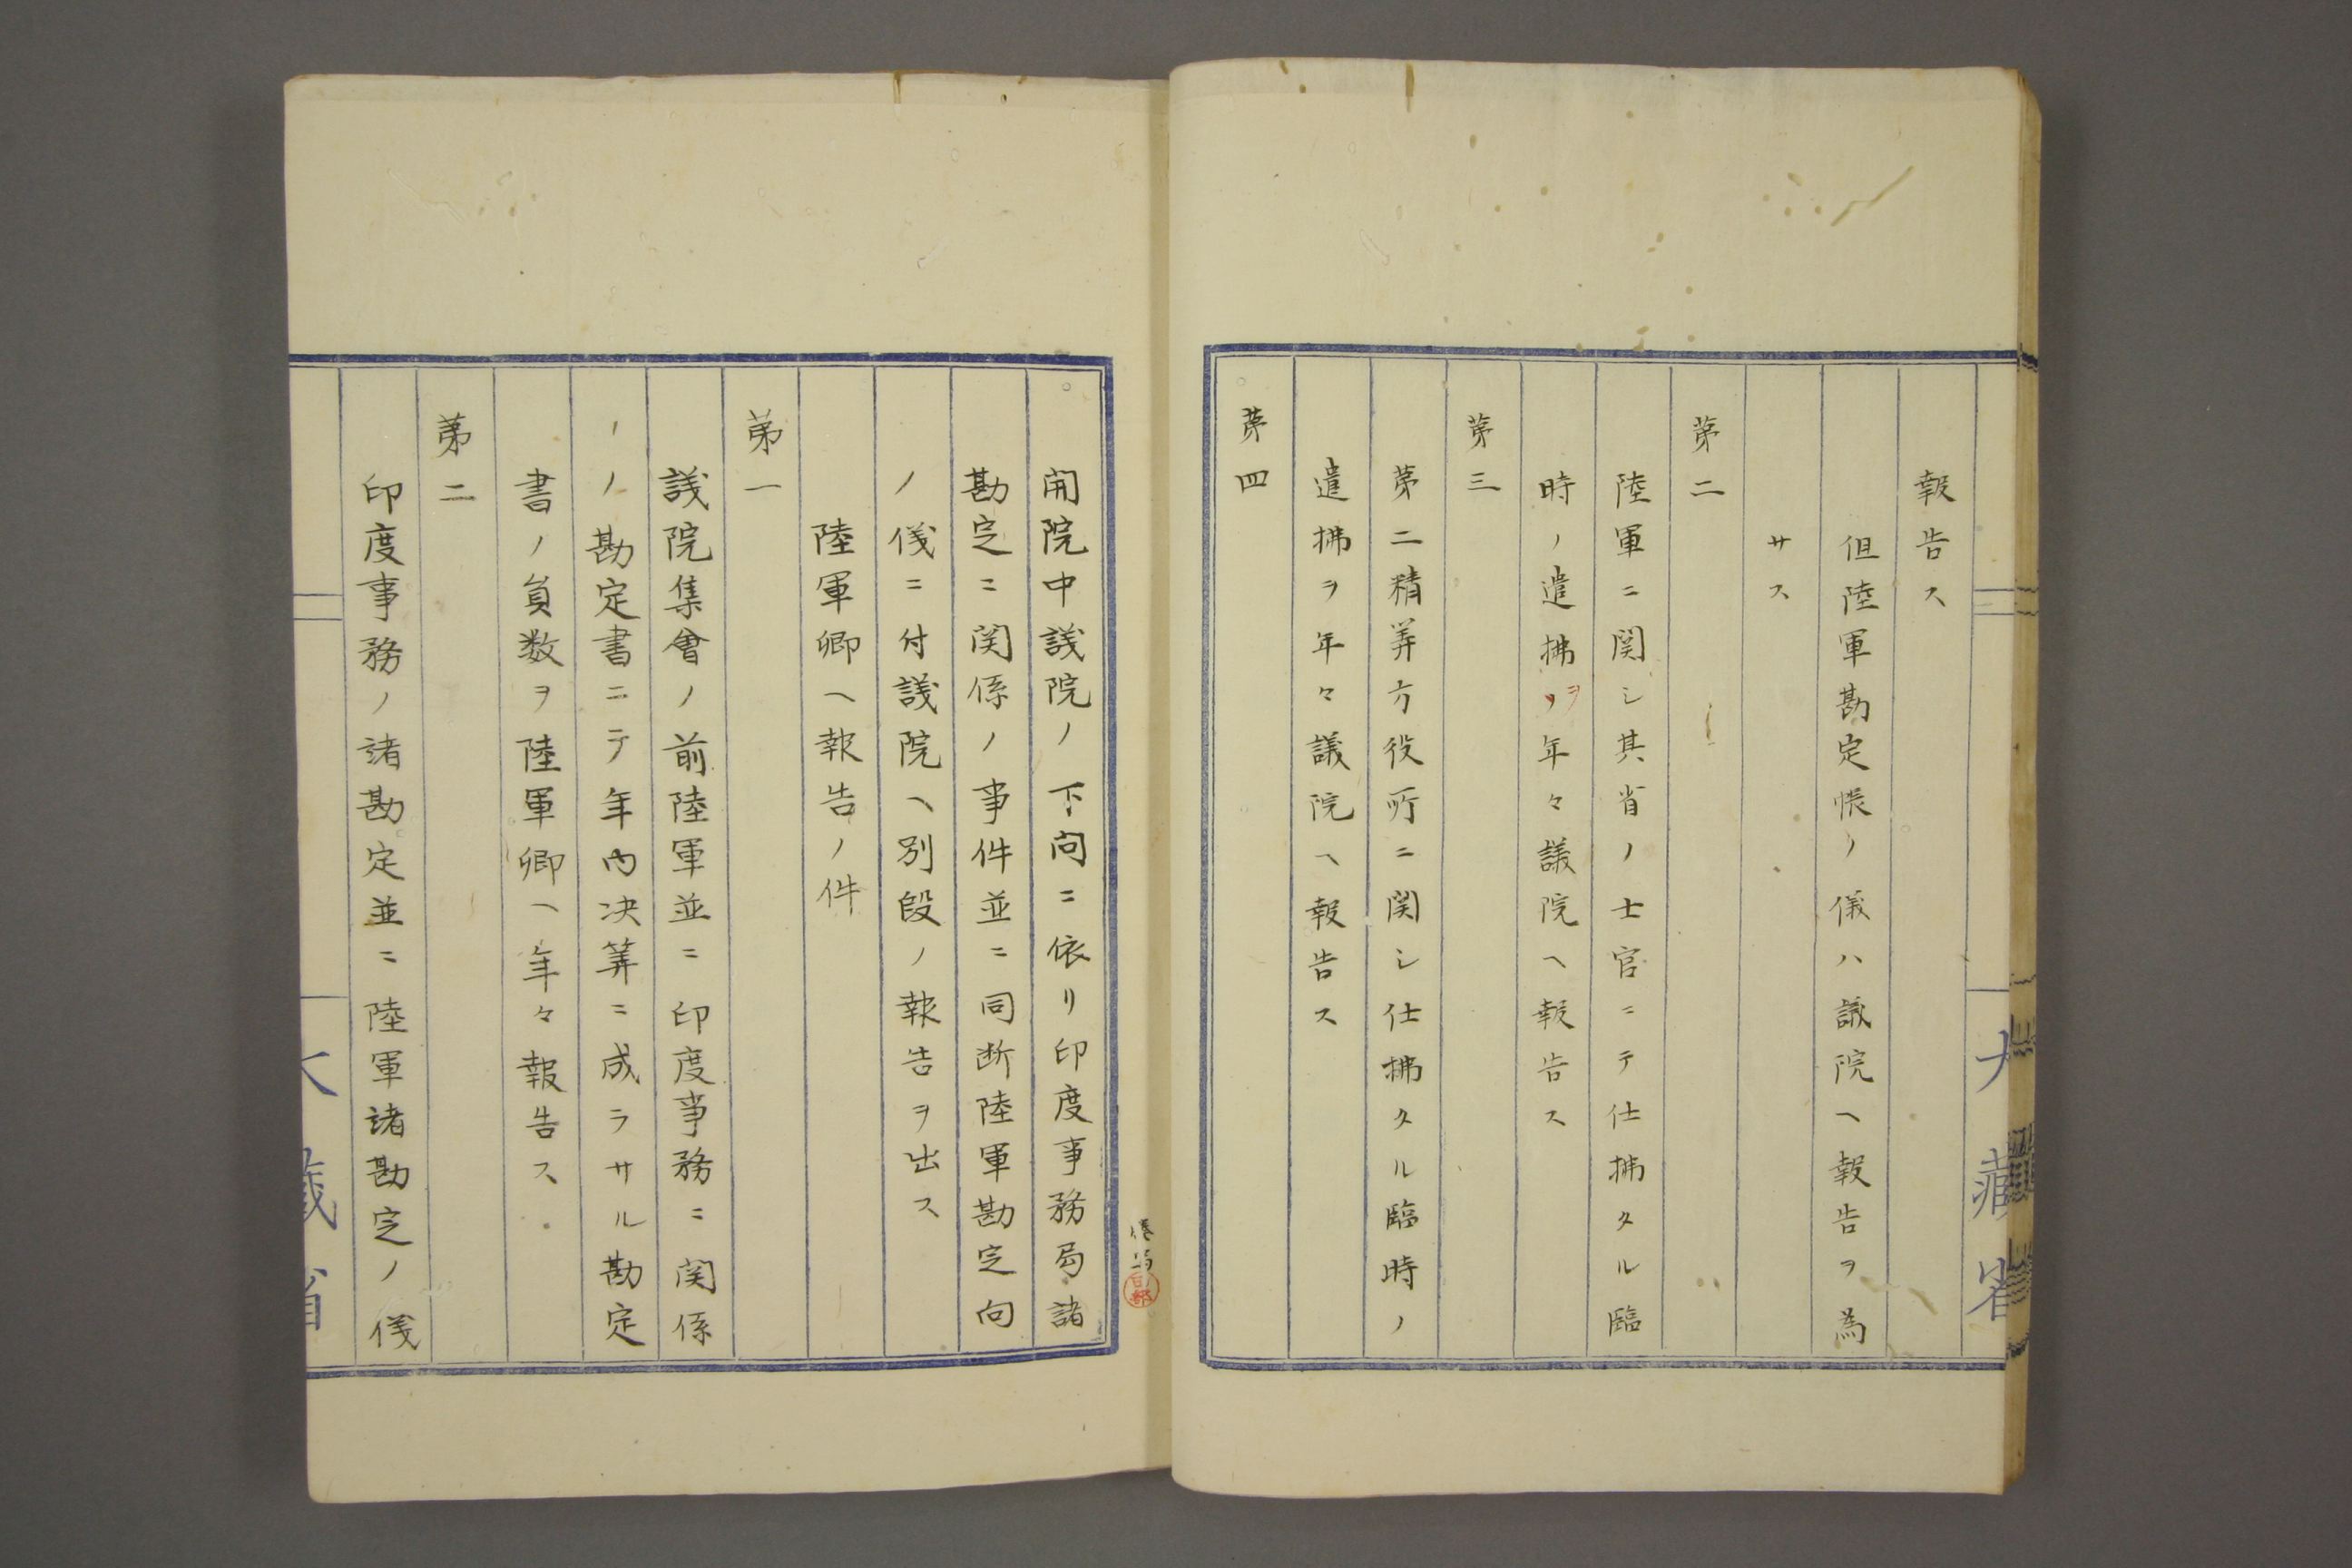 報告ス
但陸軍勘定帳ノ儀ハ議院ヘ報告ヲ為
サス
第二
陸軍ニ関シ其省ノ士官ニテ仕拂タル臨
時ノ遣拂ヲ年々議院ヘ報告ス
第三
第二精筭方役所ニ関シ仕拂タル臨時ノ
遣拂ヲ年々議院ヘ報告ス
第四
大藏省
開院中議院ノ下問ニ依リ印度事務局諸
勘定ニ関係ノ事件並ニ同断陸軍勘定向
ノ儀ニ付議院ヘ別段ノ報告ヲ出ス
陸軍卿ヘ報告ノ件
第一
議院集會ノ前陸軍並ニ印度事務ニ関係
ノ勘定書ニテ年内决筭ニ成ラサル勘定
書ノ負数ヲ陸軍卿ヘ年々報告ス
第二
印度事務ノ諸勘定並ニ陸軍諸勘定ノ儀
大藏省